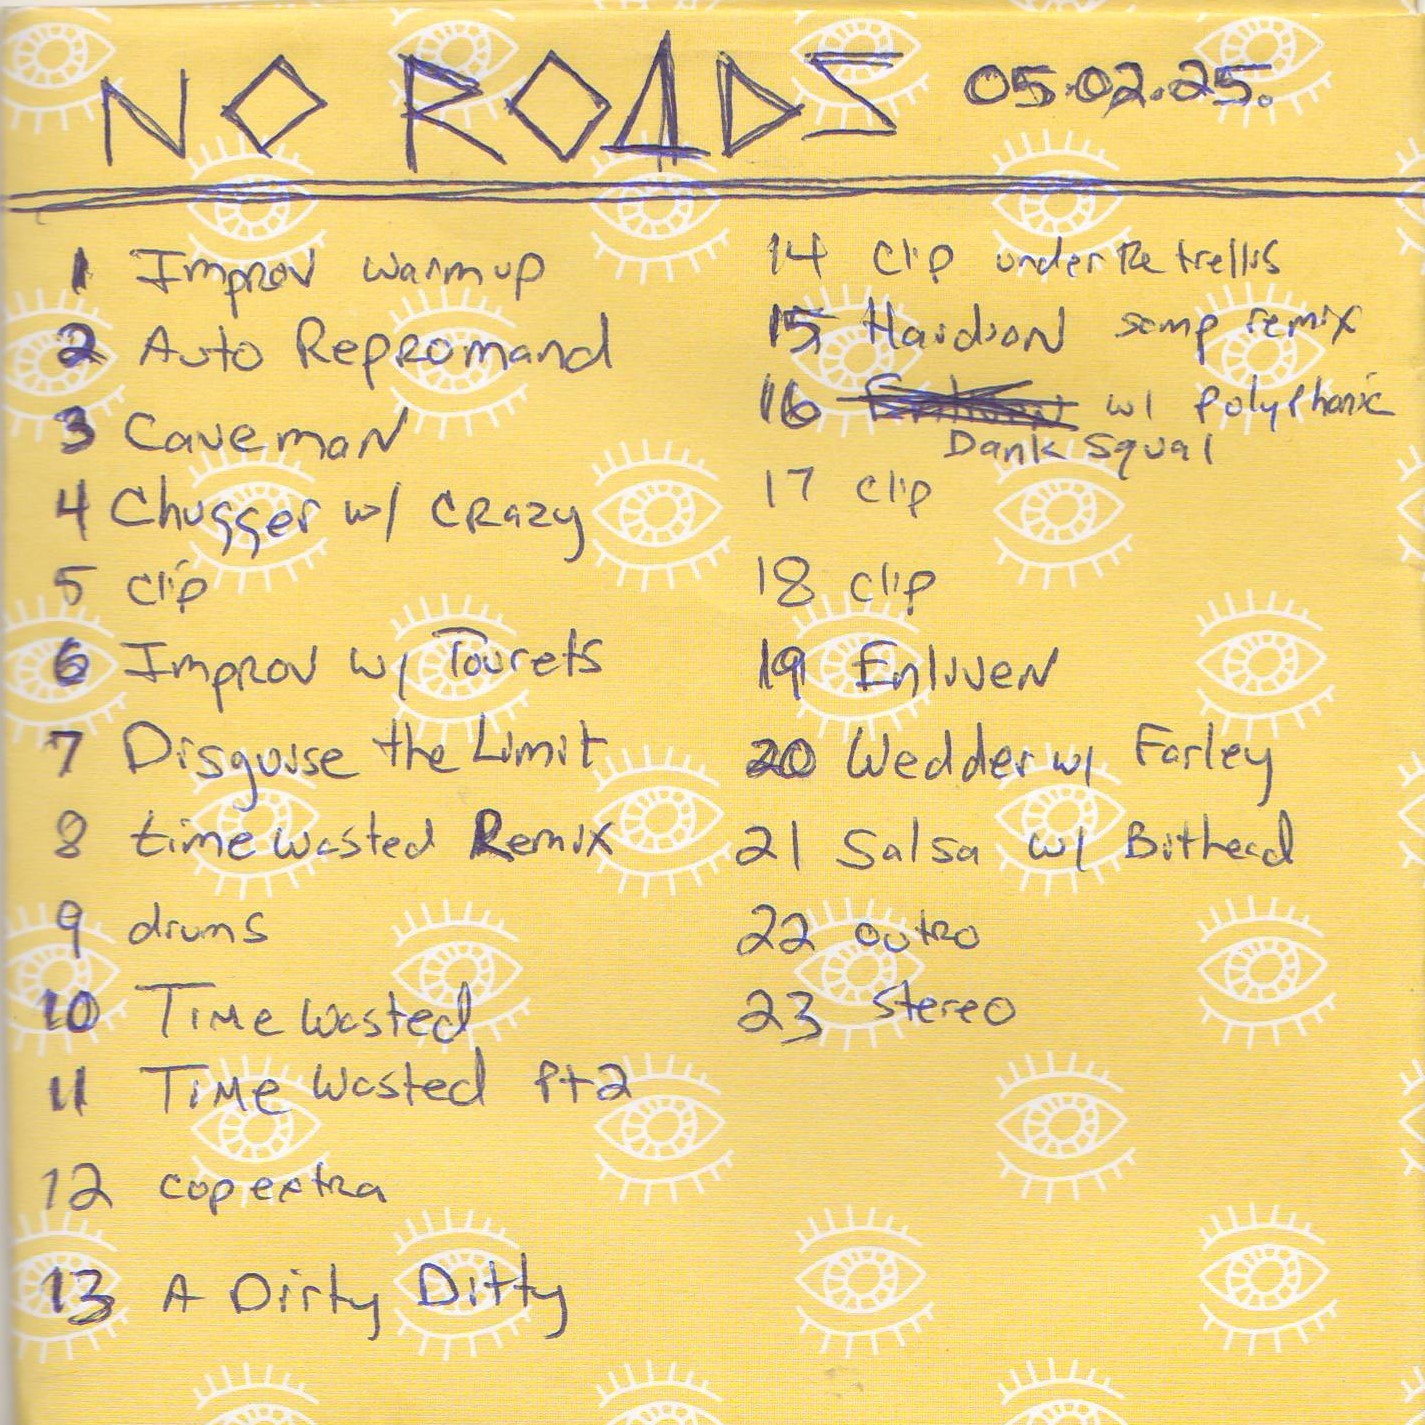 NO ROADS 05.02.25.
1 Improv warmup
2 Auto Repromand
3 Caveman
4 Chugger w/ Crazy
5 clip
6 Improv w/ Tourets
7 Disguise the Limit
8 time wasted Remix
9 drums
10 Time Wasted
11 Time Wasted pt2
12 copextra
13 A Dirty Ditty
14 Clip under the trellis
15 Hardson somp remix
16 w/ polyphonic
Dank Squal
17 clip
18 clip
19 Enliven
20 Wedder w/ Farley
21 Salsa w/ Bithead
22 outro
23 stereo